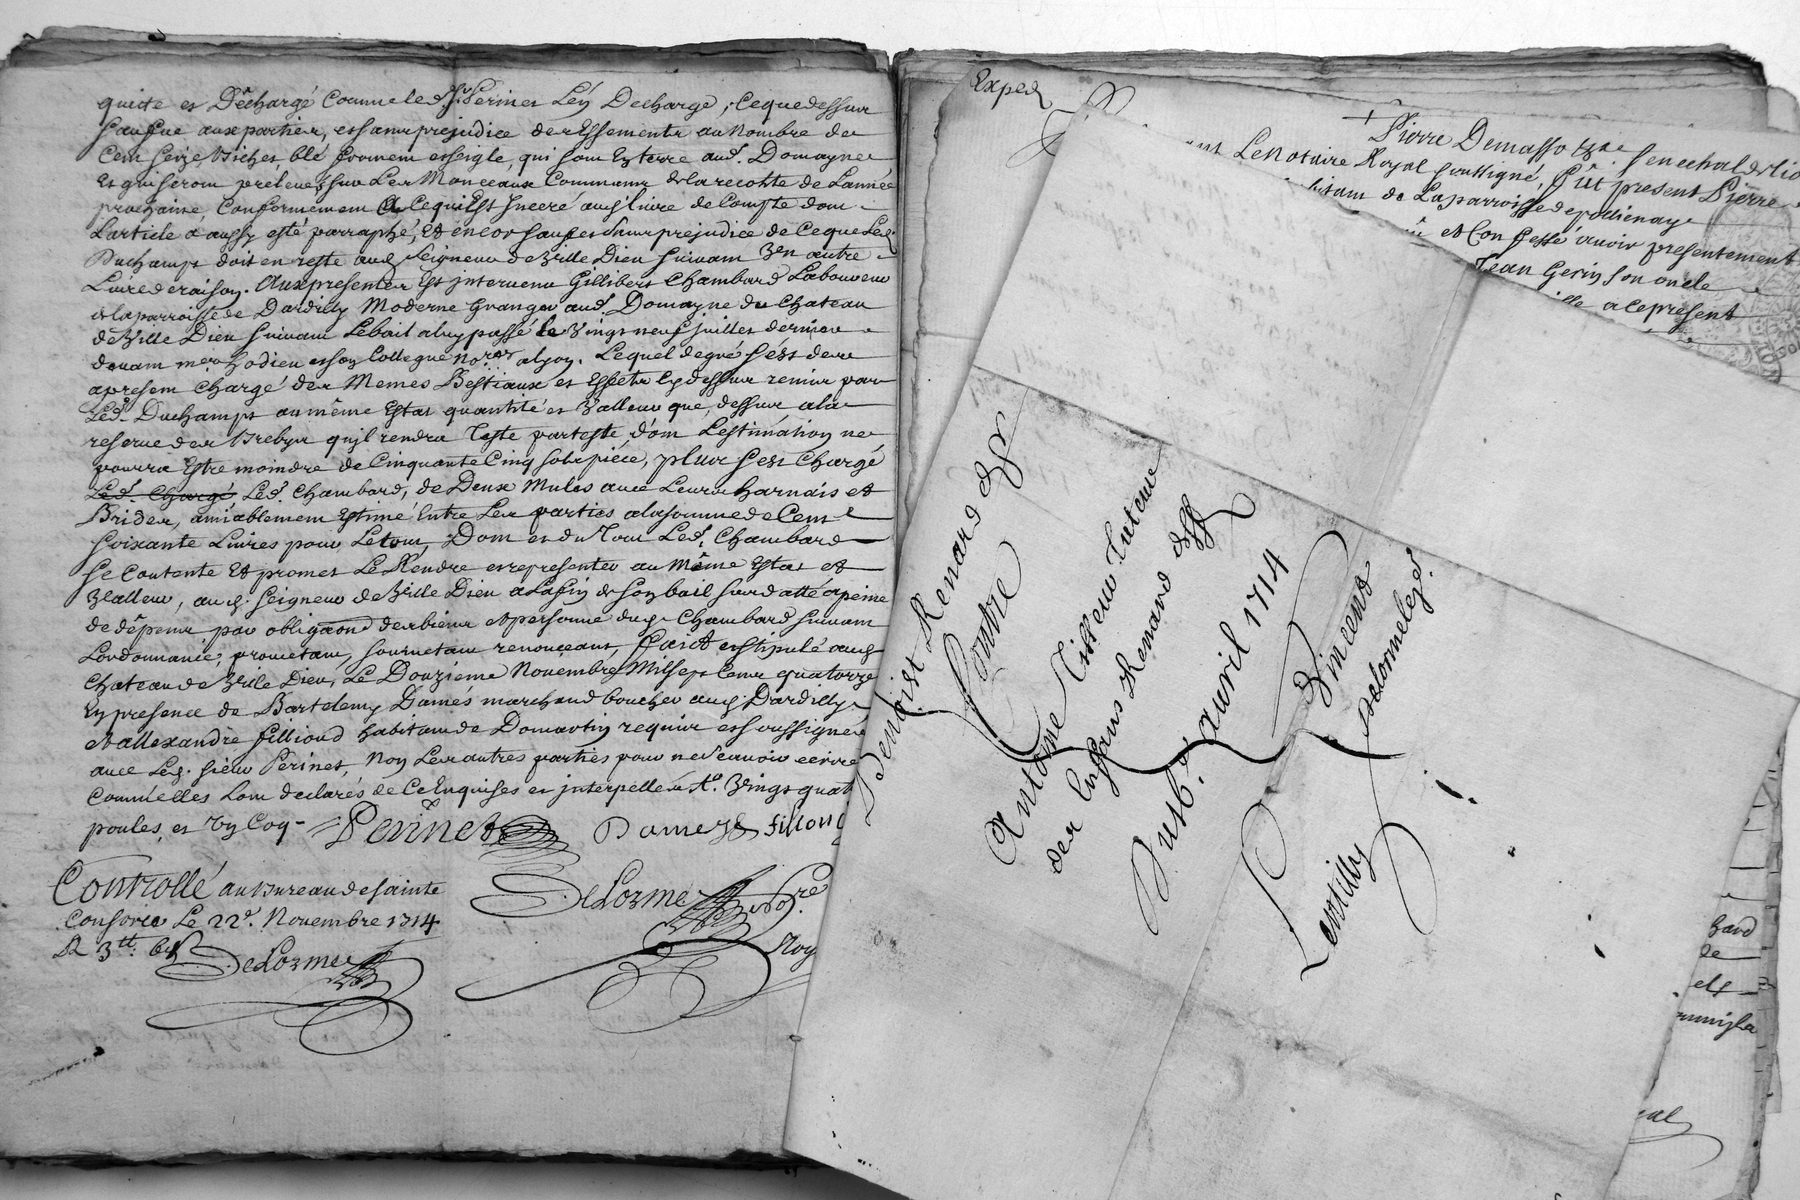 quitte et Déchargé Comme led. Sr. Perinet Len Decharge, Ceque dessus
Sauf que aux parties, et sans prejudice des Essements au Nombre de
Cent Seize Bichets, blé froment et seigle, qui sont En terre aud. Domayne
Et qui seront prelevés sur Les Monceaux Communs de la recolte de Lannée
prochaine, Conformement A Cequi Est Inceré aud. livre de Compte dont
Larticle a aussy esté parraphé, Et encor sauf et sans prejudice de Ceque Led.
Duchamps doit en reste aud. Seigneur de Ville Dieu suivant Un autre
Livre de raison. Aux presentes Est intervenu Gillibert Chambard Laboureur
de la parroisse de Dardilly Moderne Granger aud. Domayne du Chateau
de Ville Dieu suivant Le bail a luy passé le Vingt neuf juillet dernier
devant me. hodieu et son Collegue Nores. a lyon. Lequel de gré s'est de
apresent Chargé des Memes Bestiaux et Effets Cy dessus remis par
Led. Duchamps au même Estat quantité et Valleur que, dessus a la
reserve des Brebys qu'il rendra Teste par teste, dont Lestimation ne
pourra Estre moindre de Cinquante Cinq sols piece, plus s'est Chargé
Led. Chargé Led. Chambard, de Deux Mules avec Leurs harnais et
Brides, amiablement Estimé Entre Les parties a la somme de Cent
soixante Livres pour Le tout, Dont et du Tout Led. Chambard
se Contente Et promet Le Rendre et representer au Même Estat et
Valleur, aud. Seigneur de Ville Dieu a La fin de son bail surdatté a peine
de dêpens par obligaon des biens et personne dud. Chambard suivant
Lordonnance, prometant, soumetant renonceant, Fait et stipulé aud.
Chateau de Ville Dieu, Le Douzieme Novembre Mil sept Cent quatorze
En presence de Bartelemy Damés marchand boucher aud. Dardilly
et allexandre fillioud habitant de Domartin requis et soussignés
avec Led. sieur Perinet, Non Les autres parties pour ne sçavoir ecrire
Comme elles Lont declarés de Ce Enquises et interpellés Vingt quat
poules, et Un Coq
Perinet Damez fillioud
DeLorme
Controllé au Bureau de sainte
Consorce Le 22e. Novembre 1714
DeLorme
Exped
Pierre Demasso senechal de
Le Notaire Royal soussigné, fût present Pierre
de La parroisse de pollienay
et Confessé avoir presentement
Jean Gerin son oncle
a le present
Benoist Renard dr
Contre
Antoine Tisseur Tuteur
des Enfans Renard deffr
Du 16e. avril 1714
Vincent
Lentilly
Delorme